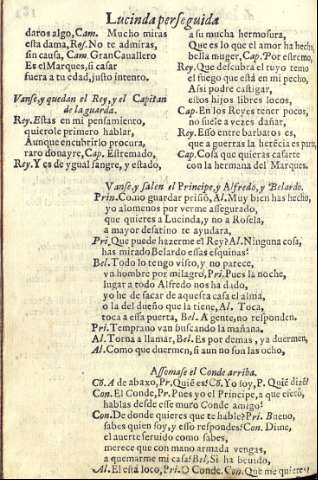 Lucinda perseguida
daros algo, Cam. Mucho miras
esta dama, Rey. No te admiras,
sin causa, Cam Gran Cauallero
Es el Marques, si casar
fuera a tu edad, justo intento.
Vanse, y quedan el Rey, y el Capitan
de la guarda.
Rey. Estas en mi pensamiento,
quierole primero hablar,
Aunque encubrirlo procura,
raro donayre, Cap. Estremado,
Rey. Y es de ygual sangre, y estado,
a su mucha hermosura,
Que es lo que el amor ha hecho,
bella muger, Cap. Por estremo,
Rey. Que descubra el tuyo temo
el fuego que está en mi pecho,
Assi podre castigar,
estos hijos libres locos,
Cap. En los Reyes tener pocos,
no suele a vezes dañar,
Rey. Esso entre barbaros es,
que a guerras la herẽcia es puro,
Cap. Cosa que quieras casarte
con la hermana del Marques.
Vanse, y salen el Principe, y Alfredo, y Belardo.
Prin. Como guardar prisiõ, Al. Muy bien has hecho,
yo alomenos por verme assegurado,
que quieres a Lucinda, y no a Rosela,
a mayor desatino te ayudara,
Pri. Que puede hazerme el Rey? Al. Ninguna cosa,
has mirado Belardo essas esquinas?
Bel. Todo lo tengo visto, y no parece,
vn hombre por milagro, Pri. Pues la noche,
lugar a todo Alfredo nos ha dido,
yo he de sacar de aquesta casa el alma,
o la del dueño que la tiene, Al. Toca,
toca a essa puerta, Bel. A gente, no responden.
Pri. Temprano van buscando la mañana.
Al. Torna a llamar, Bel. Es por demas, ya duermen,
Al. Como que duermen, si aun no son las ocho,
Assomase el Conde arriba.
Cõ. A de abaxo, Pr. Quiẽ es? Cõ. Yo soy, P. Quiẽ dizẽ?
Con. El Conde, Pr. Pues yo el Principe, a que efetõ,
hablas desde esse muro Conde amigo?
Con. De donde quieres que te hable? Pri. Bueno,
sabes quien soy, y esso respondes? Con. Dime,
el auerte seruido como sabes,
merece que con mano armada vengas,
a quemarme mi casa? Bel. Si ha beuido,
Al. El está loco, Pri. O Conde. Con. Que me quieres?